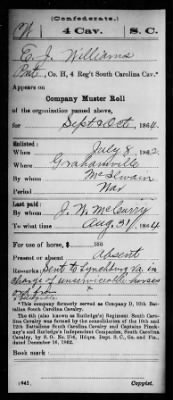 (Confederate.)
W 4 Cav. S. C.
E. J. Williams
Pvt, Co. H, 4 Reg't South Carolina Cav.*
Appears on
Company Muster Roll
of the organization named above,
for Sept & Oct, 1864.
Enlisted:
When July 8, 1862
Where Grahamville
By whom McIlwain
Period War
Last paid:
By whom J. W. McCurry
To what time Aug. 31, 1864
For use of horse, $ 186
Present or absent Absent
Remarks: Sent to Lynchburg Va. in
charge of unserviceable horses
from
*This company formerly served as Company D, 10th Bat-
talion South Carolina Cavalry.
The 4th (also known as Rutledge's) Regiment South Caro-
lina Cavalry was formed by the consolidation of the 10th and
12th Battalions South Carolina Cavalry and Captains Pinck-
ney's and Rutledge's Independent Companies, South Carolina
Cavalry, by S. O. No. Hdqrs. Dept. S. C., Ga. and Fla.,
dated December 16, 1862.
Book mark:
(642)
Copyist.